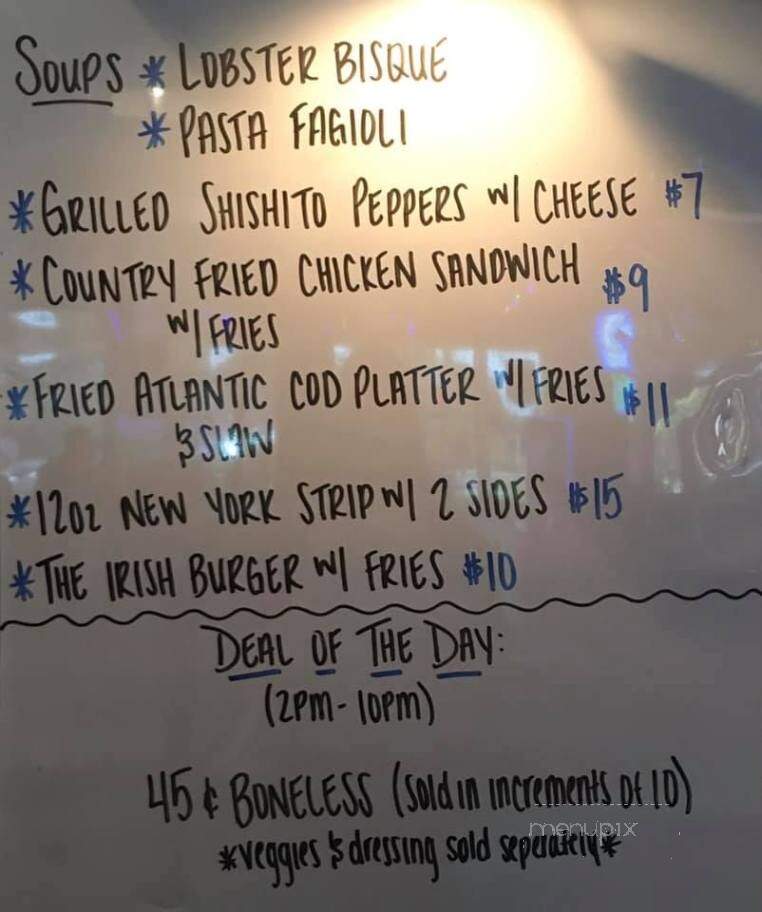 SOUPS * LOBSTER BISQUE
* PASTA FAGIOLI
* GRILLED SHISHITO PEPPERS W/ CHEESE $7
* COUNTRY FRIED CHICKEN SANDWICH $9
W/ FRIES
* FRIED ATLANTIC COD PLATTER W/ FRIES $11
& SLAW
* 12OZ NEW YORK STRIP W/ 2 SIDES $15
* THE IRISH BURGER W/ FRIES $10
DEAL OF THE DAY:
(2PM - 10PM)
45¢ BONELESS (Sold in increments of 10)
menupix
*veggies & dressing sold seperately*